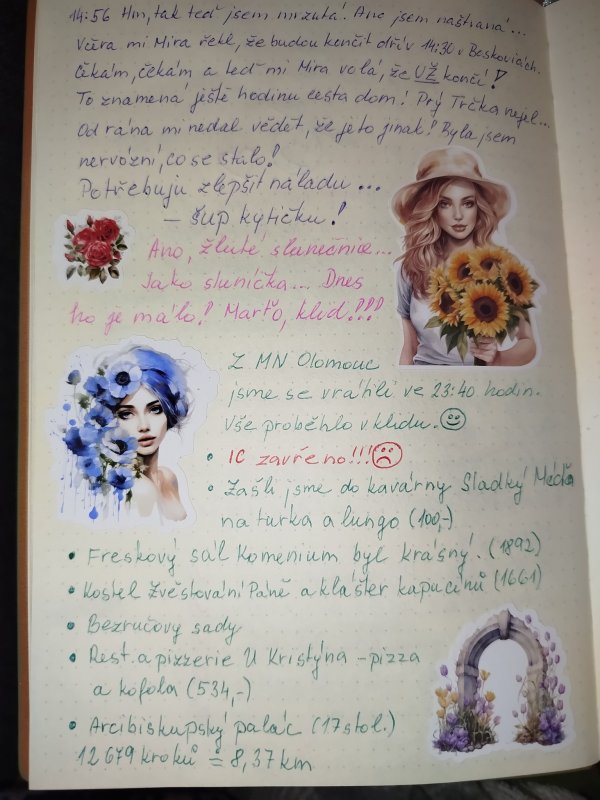 14:56 Hm, tak teď jsem mrzutá! Ano jsem naštvaná...
Včera mi Mira řekl, že budou končit dřív 14:30 v Boskovicích.
Čekám, čekám a teď mi Mira volá, že UŽ končí!
To znamená ještě hodinu cesta domů! Prý Trčka nejel...
Od rána mi nedal vědět, že je to jinak! Byla jsem
nervózní, co se stalo!
Potřebuju zlepšit náladu...
– šup kytičku!
Ano, žluté slunečnice...
Jako sluníčka... Dnes
ho je málo! Marťo, klid!!!
Z MN Olomouc
jsme se vrátili ve 23:40 hodin.
Vše proběhlo v klidu. ☺
• IC zavřeno!!! ☹
• Zašli jsme do kavárny Sladký Mečka
na turka a lungo (100,-)
• Freskový sál Komenium byl krásný. (1892)
• Kostel Zvěstování Páně a klášter kapucínů (1661)
• Bezručovy sady
• Rest. a pizzerie U Kristýna – pizza
a kofola (534,-)
• Arcibiskupský palác (17 stol.)
12 679 kroků = 8,37 km